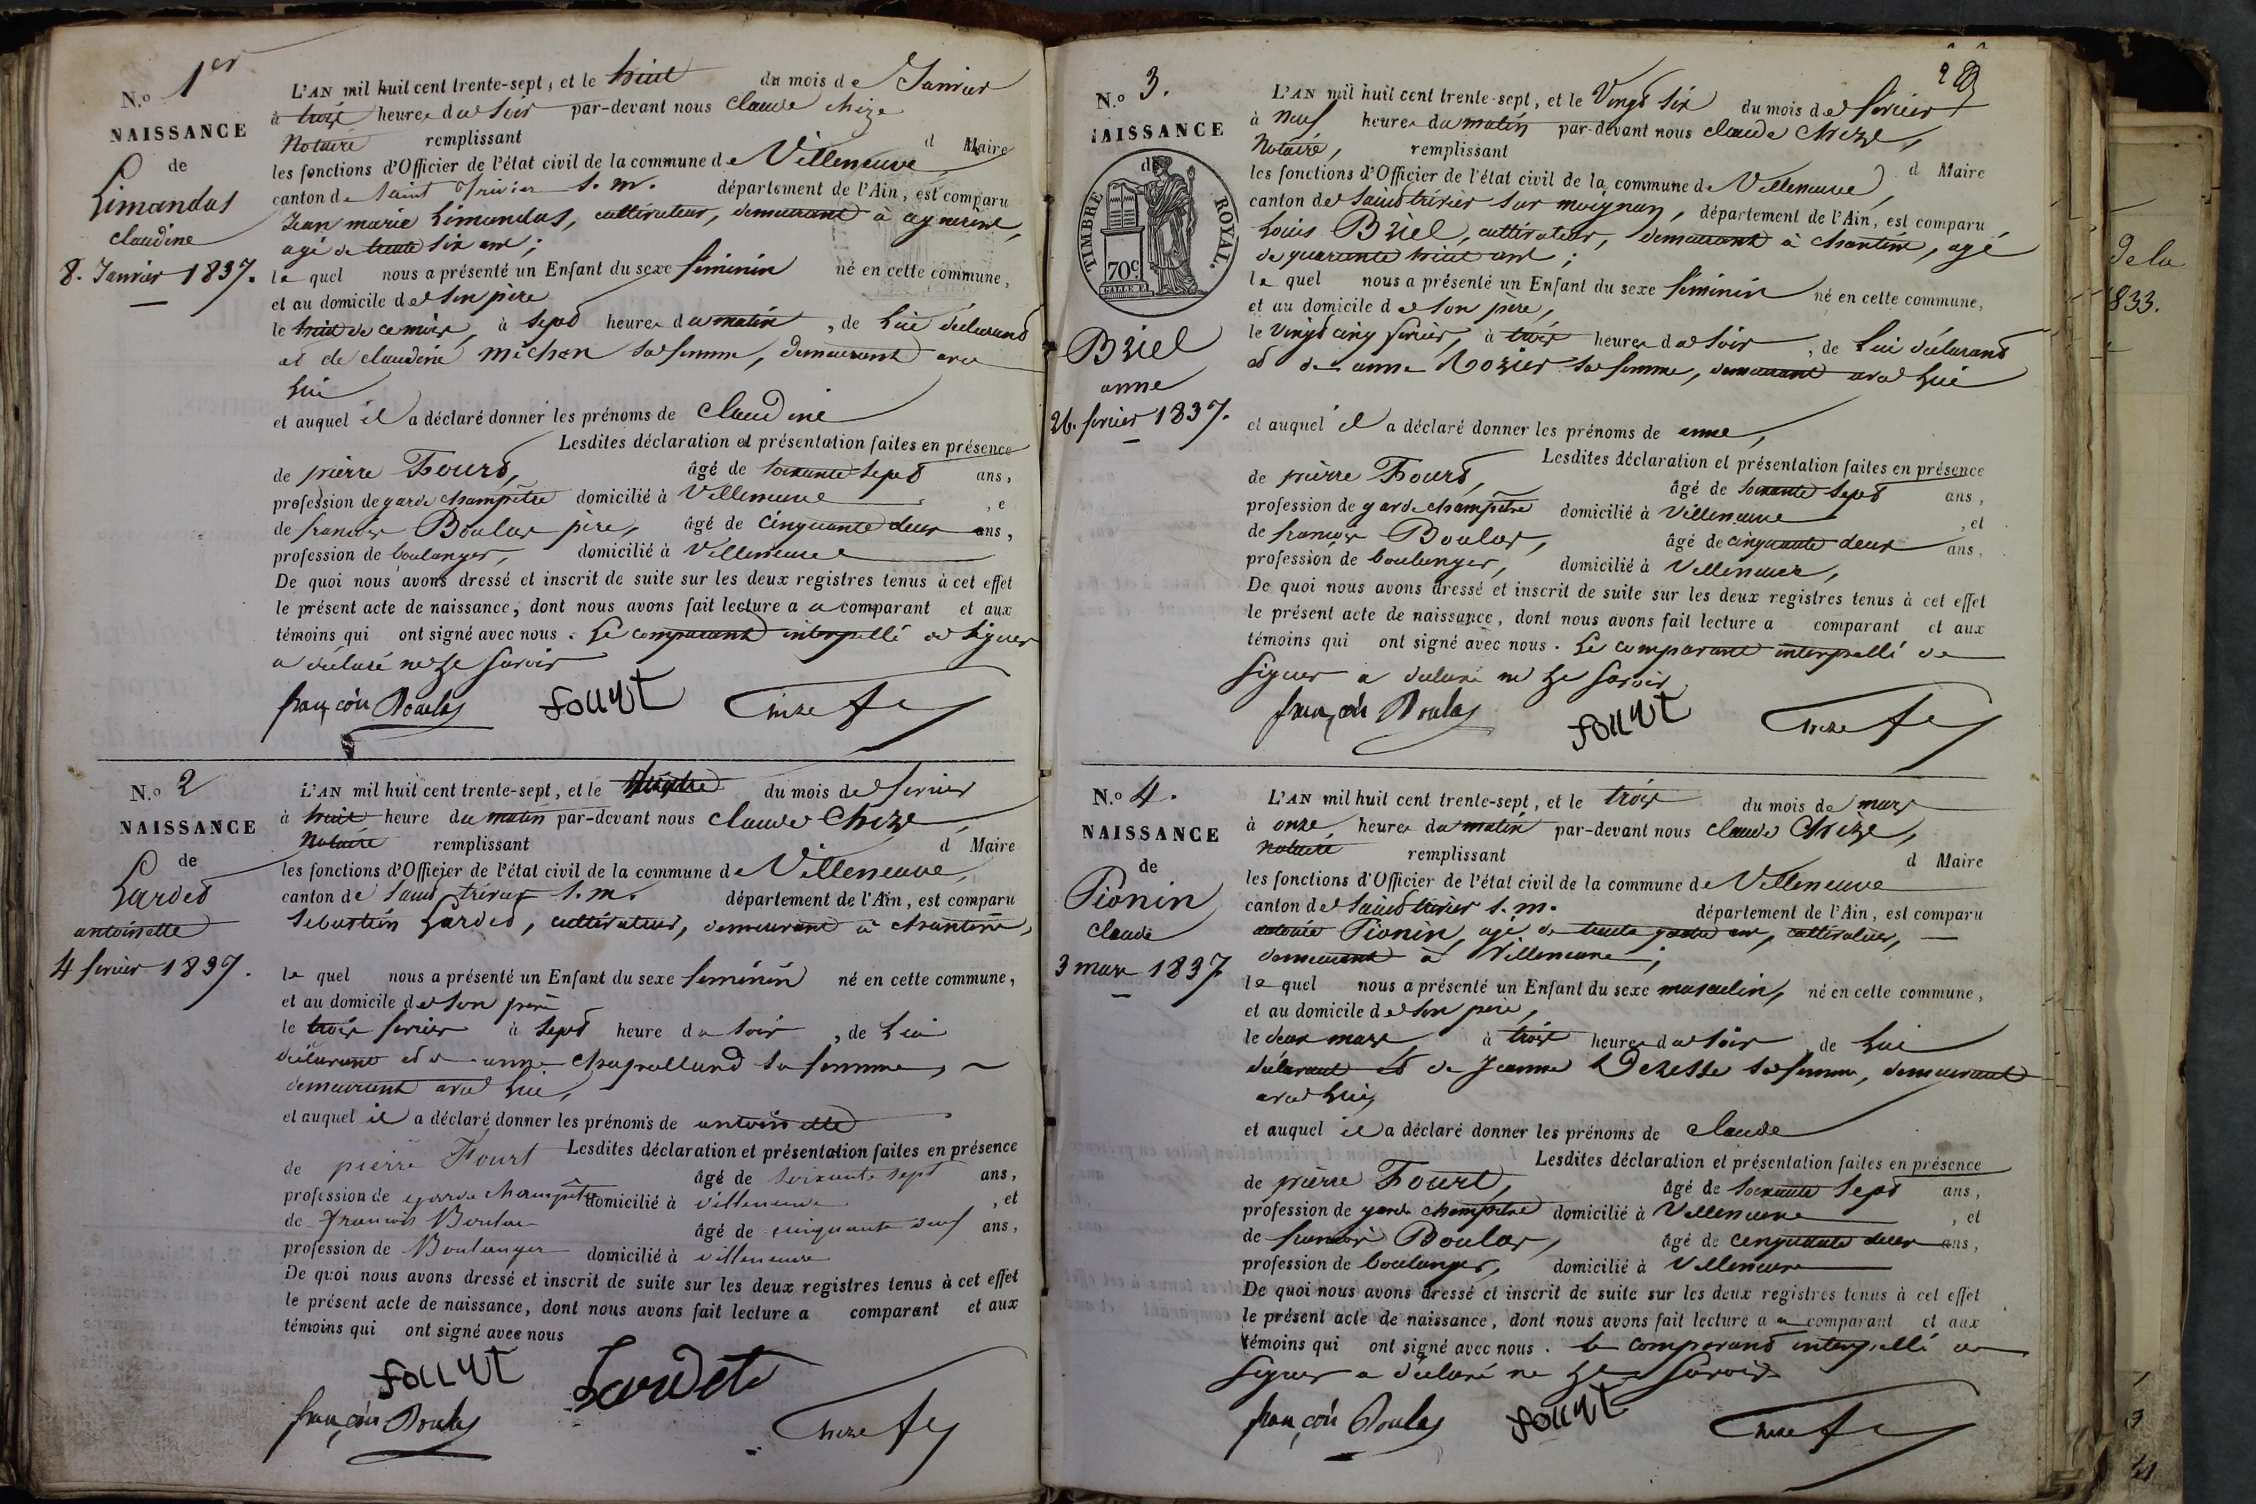 N.o 1er
NAISSANCE
de
Limandas
claudine
8. Janvier 1837.
L'AN mil huit cent trente-sept, et le huit du mois de Janvier
à trois heures du soir par-devant nous claude chize
Notaire remplissant d Maire
les fonctions d'Officier de l'état civil de la commune de Villeneuve
canton de Saint Trivier s. m. département de l'Ain, est comparu
Jean marie Limandas, cultivateur, demeurant à
agé de trente six ans;
le quel nous a présenté un Enfant du sexe féminin né en cette commune,
et au domicile de son père
le huit de ce mois, à sept heures du matin, de lui déclarant
et de claudine michon sa femme, demeurant avec
lui
et auquel il a déclaré donner les prénoms de claudine
Lesdites déclaration et présentation faites en présence
de pierre Fourt, âgé de soixante sept ans,
profession de garde champêtre domicilié à Villeneuve, e
de francois Boulas père, âgé de cinquante deux ans,
profession de boulanger, domicilié à Villeneuve
De quoi nous avons dressé et inscrit de suite sur les deux registres tenus à cet effet
le présent acte de naissance, dont nous avons fait lecture a u comparant et aux
témoins qui ont signé avec nous. Le comparant interpellé de signer
a déclaré ne le savoir
françois Boulas fourt Chize
N.o 2
NAISSANCE
de
Lardet
antoinette
4 fevrier 1837.
L'AN mil huit cent trente-sept, et le quatre du mois de fevrier
à huit heure du matin par-devant nous claude Chize,
Notaire remplissant d Maire
les fonctions d'Officier de l'état civil de la commune de Villeneuve,
canton de Saint trivier s. m. département de l'Ain, est comparu
Sebastien Lardet, cultivateur, demeurant à chanteins,
le quel nous a présenté un Enfant du sexe feminin né en cette commune,
et au domicile de son père
le trois fevrier à sept heure du soir, de lui
déclarant et de anne chapolland sa femme,
demeurant avec lui,
et auquel il a déclaré donner les prénoms de antoinette
Lesdites déclaration et présentation faites en présence
de pierre Fourt âgé de soixante sept ans,
profession de garde champêtre domicilié à villeneuve, et
de francois Boulas âgé de cinquante deux ans,
profession de Boulanger domicilié à villeneuve
De quoi nous avons dressé et inscrit de suite sur les deux registres tenus à cet effet
le présent acte de naissance, dont nous avons fait lecture a comparant et aux
témoins qui ont signé avec nous
fourt Lardet
françois Boulas Chize
N.o 3.
NAISSANCE
de
TIMBRE ROYAL.
70c.
Briel
anne
26. fevrier 1837.
L'AN mil huit cent trente-sept, et le Vingt six du mois de fevrier
à neuf heures du matin par-devant nous claude Chize,
Notaire, remplissant d Maire
les fonctions d'Officier de l'état civil de la commune de Villeneuve,
canton de saint trivier sur moignan, département de l'Ain, est comparu
Louis Briel, cultivateur, demeurant à chanteins, agé
de quarante huit ans;
le quel nous a présenté un Enfant du sexe féminin né en cette commune,
et au domicile de son père,
le vingt cinq fevrier, à trois heures du soir, de lui déclarant
et de anne Rozier sa femme, demeurant avec lui
et auquel il a déclaré donner les prénoms de anne,
Lesdites déclaration et présentation faites en présence
de pierre Fourt, âgé de soixante sept ans,
profession de garde champêtre domicilié à Villeneuve, et
de françois Boulas, âgé de cinquante deux ans,
profession de boulanger, domicilié à Villeneuve,
De quoi nous avons dressé et inscrit de suite sur les deux registres tenus à cet effet
le présent acte de naissance, dont nous avons fait lecture a comparant et aux
témoins qui ont signé avec nous. Le comparant interpellé de
signer a déclaré ne le savoir
françois Boulas fourt Chize
N.o 4.
NAISSANCE
de
Pionin
claude
3 mars 1837
L'AN mil huit cent trente-sept, et le trois du mois de mars
à onze, heures du matin par-devant nous claude Chize,
Notaire remplissant d Maire
les fonctions d'Officier de l'état civil de la commune de Villeneuve
canton de saint trivier s. m. département de l'Ain, est comparu
antoine Pionin, agé de trente quatre ans, cultivateur,
demeurant à Villeneuve;
le quel nous a présenté un Enfant du sexe masculin, né en cette commune,
et au domicile de son père,
le deux mars à trois heures du soir, de lui
déclarant et de Jeanne Dezesse sa femme, demeurant
avec lui,
et auquel il a déclaré donner les prénoms de claude
Lesdites déclaration et présentation faites en présence
de pierre Fourt, âgé de soixante sept ans,
profession de garde champêtre domicilié à Villeneuve, et
de francois Boulas, âgé de cinquante deux ans,
profession de boulanger, domicilié à Villeneuve
De quoi nous avons dressé et inscrit de suite sur les deux registres tenus à cet effet
le présent acte de naissance, dont nous avons fait lecture a u comparant et aux
témoins qui ont signé avec nous. Le comparant interpellé de
signer a déclaré ne le savoir
françois Boulas fourt Chize
de la
833.